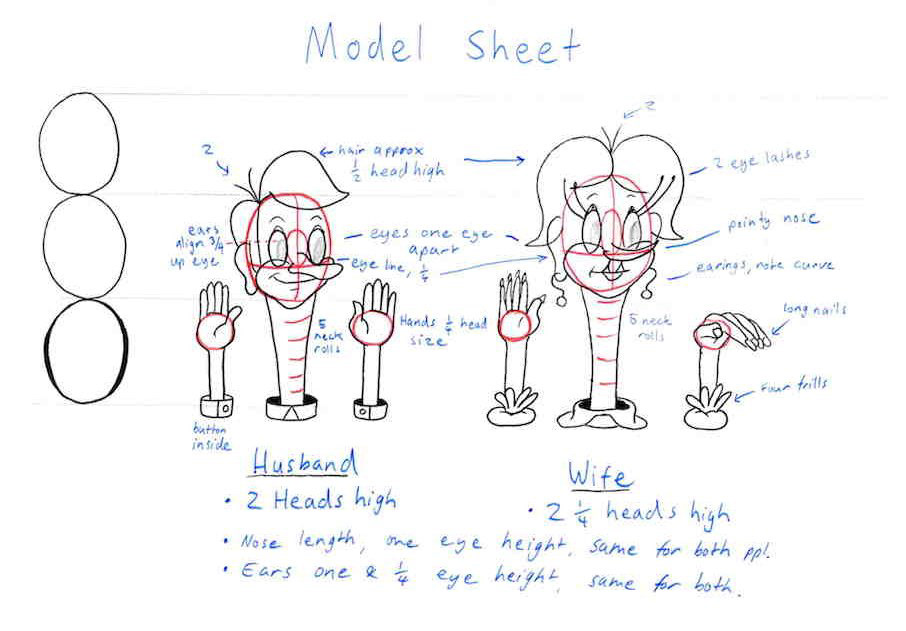 Model Sheet
2
2
hair approx
1/2 head high
2 eye lashes
ears
align 3/4
up eye
eyes one eye
apart
eye line, 1/4
pointy nose
earings, note curve
5
neck
rolls
Hands 1/4 head
size
5 neck
rolls
long nails
four frills
button
inside
Husband
• 2 Heads high
Wife
• 2 1/4 heads high
• Nose length, one eye height, same for both ppl.
• Ears one & 1/4 eye height, same for both.